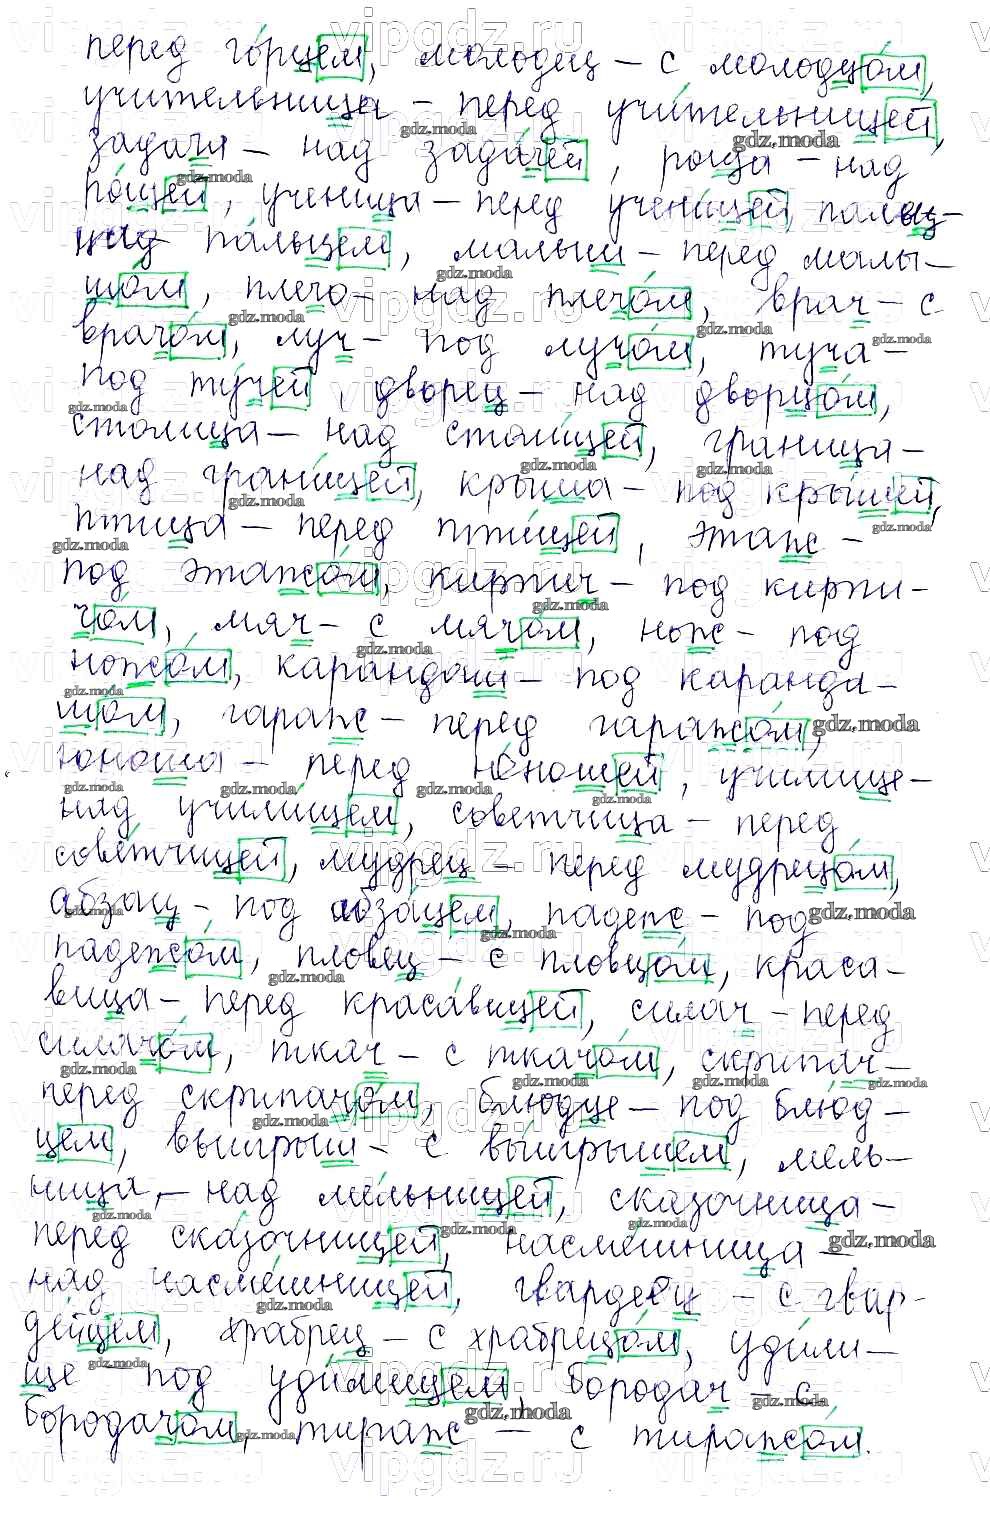 перед горцем, молодец – с молодцом,
учительница – перед учительницей,
задача – над задачей, роща – над
рощей, ученица – перед ученицей, палец –
над пальцем, малыш – перед малы–
шом, плечо – над плечом, врач – с
врачом, луч – под лучом, туча –
под тучей, дворец – над дворцом,
столица – над столицей, граница –
над границей, крыша – под крышей,
птица – перед птицей, этаж –
под этажом, кирпич – под кирпи–
чом, мяч – с мячом, нож – под
ножом, карандаш – под каранда–
шом, гараж – перед гаражом,
юноша – перед юношей, училище –
над училищем, советчица – перед
советчицей, мудрец – перед мудрецом,
абзац – под абзацем, падеж – под
падежом, пловец – с пловцом, краса–
вица – перед красавицей, силач – перед
силачом, ткач – с ткачом, скрипач –
перед скрипачом, блюдце – под блюд–
цем, выигрыш – с выигрышем, мель–
ница, – над мельницей, сказочница –
перед сказочницей, насмешница –
над насмешницей, гвардеец – с гвар–
дейцем, храбрец – с храбрецом, удили–
ще – под удилищем, бородач – с
бородачом, тираж – с тиражом.